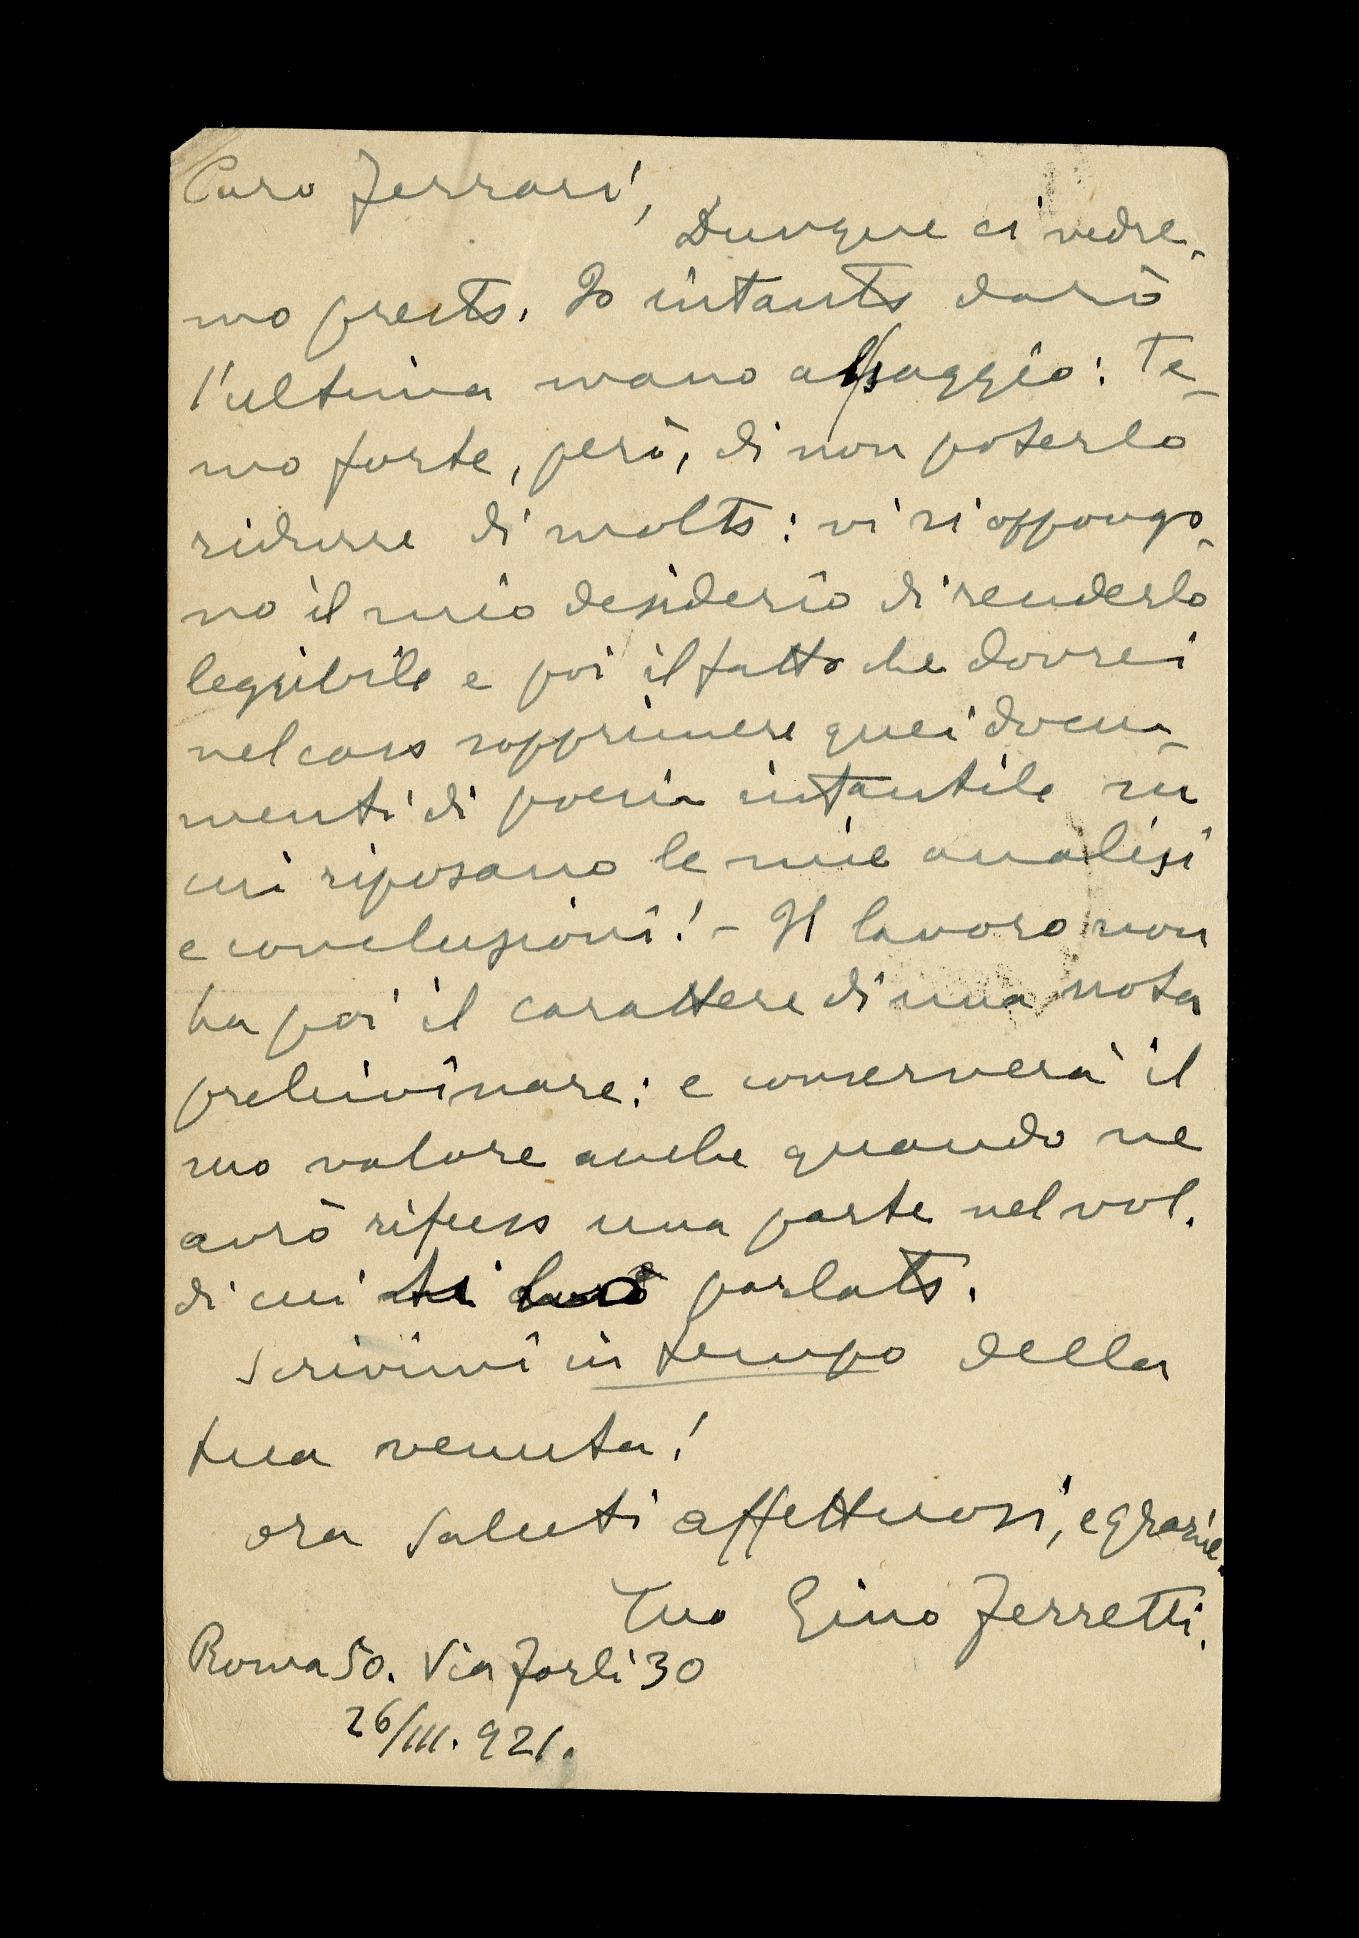 Caro Ferrari,
Dunque ci vedre-
mo presto. Io intanto darò
l'ultima mano al saggio: Te-
mo forte, però, di non poterlo
ridurre di molto: vi si oppongo-
no il mio desiderio di renderlo
leggibile e poi il fatto che dovrei
nel caso sopprimere quei docu-
menti di poesia infantile su
cui riposano le mie analisi
e conclusioni! - Il lavoro non
ha poi il carattere di una nota
preliminare: e conserverà il
suo valore anche quando ne
avrò rifuso una parte nel vol.
di cui parlato.
Scrivimi in tempo della
tua venuta!
ora saluti affettuosi, e grazie.
Tuo Gino Ferretti.
Roma 50. Via Forlì 30
26/III. 921.